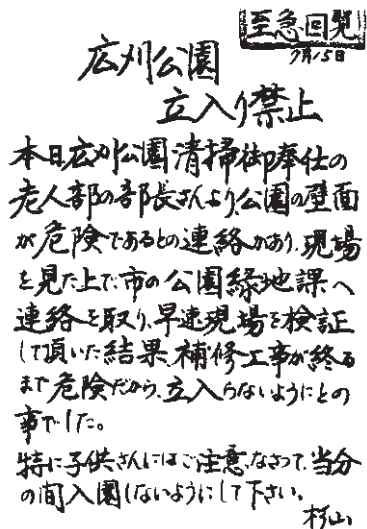 至急回覧
7月15日
広刈公園
立入り禁止
本日広刈公園清掃御奉仕の
老人部の部長さんより、公園の壁面
が危険であるとの連絡があり、現場
を見た上で、市の公園緑地課へ
連絡を取り、早速現場を検証
して頂いた結果、補修工事が終る
まで危険だから、立入らないようにとの
事でした。
特に子供さんにはご注意なさって、当分
の間入園しないようにして下さい。
杉山